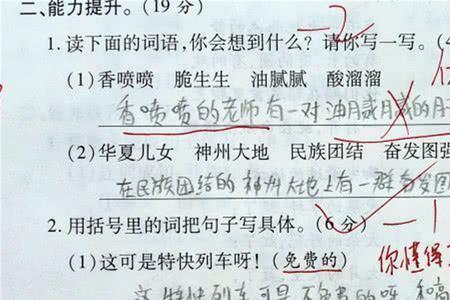 二、能力提升。(19 分)
1. 读下面的词语,你会想到什么?请你写一写。(
(1)香喷喷 脆生生 油腻腻 酸溜溜
香喷喷的老师有一对油腻腻的
(2)华夏儿女 神州大地 民族团结 奋发图强
在民族团结的神州大地上有一群奋发图
2. 用括号里的词把句子写具体。(6 分)
(1)这可是特快列车呀!(免费的) 你懂得
这特快列车可是不免费的呀